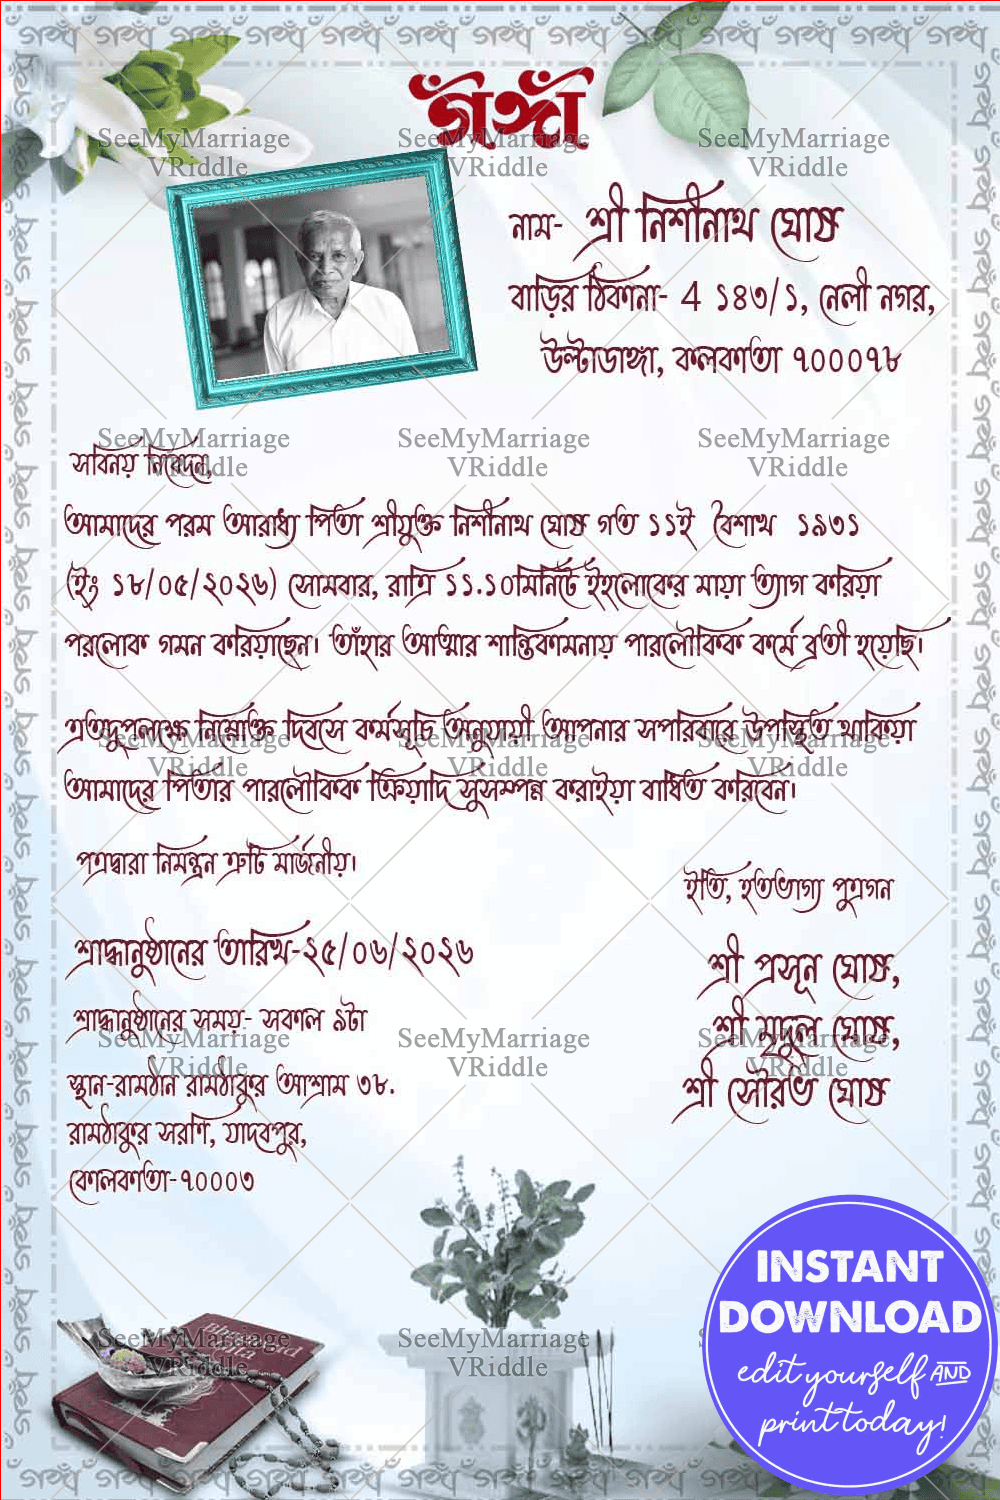 গঙ্গা
নাম- শ্রী নিশীনাথ ঘোষ
বাড়ির ঠিকানা- 4 ১৪৩/১, নেলী নগর,
উল্টাডাঙ্গা, কলকাতা ৭০০০৭৮
সবিনয় নিবেদন,
আমাদের পরম আরাধ্য পিতা শ্রীযুক্ত নিশীনাথ ঘোষ গত ১১ই বৈশাখ ১৯৩১
(ইং ১৮/০৫/২০২৬) সোমবার, রাত্রি ১১.১০মিনিটে ইহলোকের মায়া ত্যাগ করিয়া
পরলোক গমন করিয়াছেন। তাঁহার আত্মার শান্তিকামনায় পারলৌকিক কর্মে ব্রতী হয়েছি।
এতদুপলক্ষে নিম্নোক্ত দিবসে কর্মসূচি অনুযায়ী আপনার সপরিবারে উপস্থিত থাকিয়া
আমাদের পিতার পারলৌকিক ক্রিয়াদি সুসম্পন্ন করাইয়া বাধিত করিবেন।
পত্রদ্বারা নিমন্ত্রন ত্রুটি মার্জনীয়।
ইতি, হতভাগ্য পুত্রগন
শ্রী প্রসূন ঘোষ,
শ্রী মৃদুল ঘোষ,
শ্রী সৌরভ ঘোষ
শ্রাদ্ধানুষ্ঠানের তারিখ-২৫/০৬/২০২৬
শ্রাদ্ধানুষ্ঠানের সময়- সকাল ৯টা
স্থান-রামঠান রামঠাকুর আশ্রাম ৩৮.
রামঠাকুর সরণি, যাদবপুর,
কোলকাতা-৭০০০৩
INSTANT
DOWNLOAD
edit yourself AND
print today!
SeeMyMarriage
VRiddle